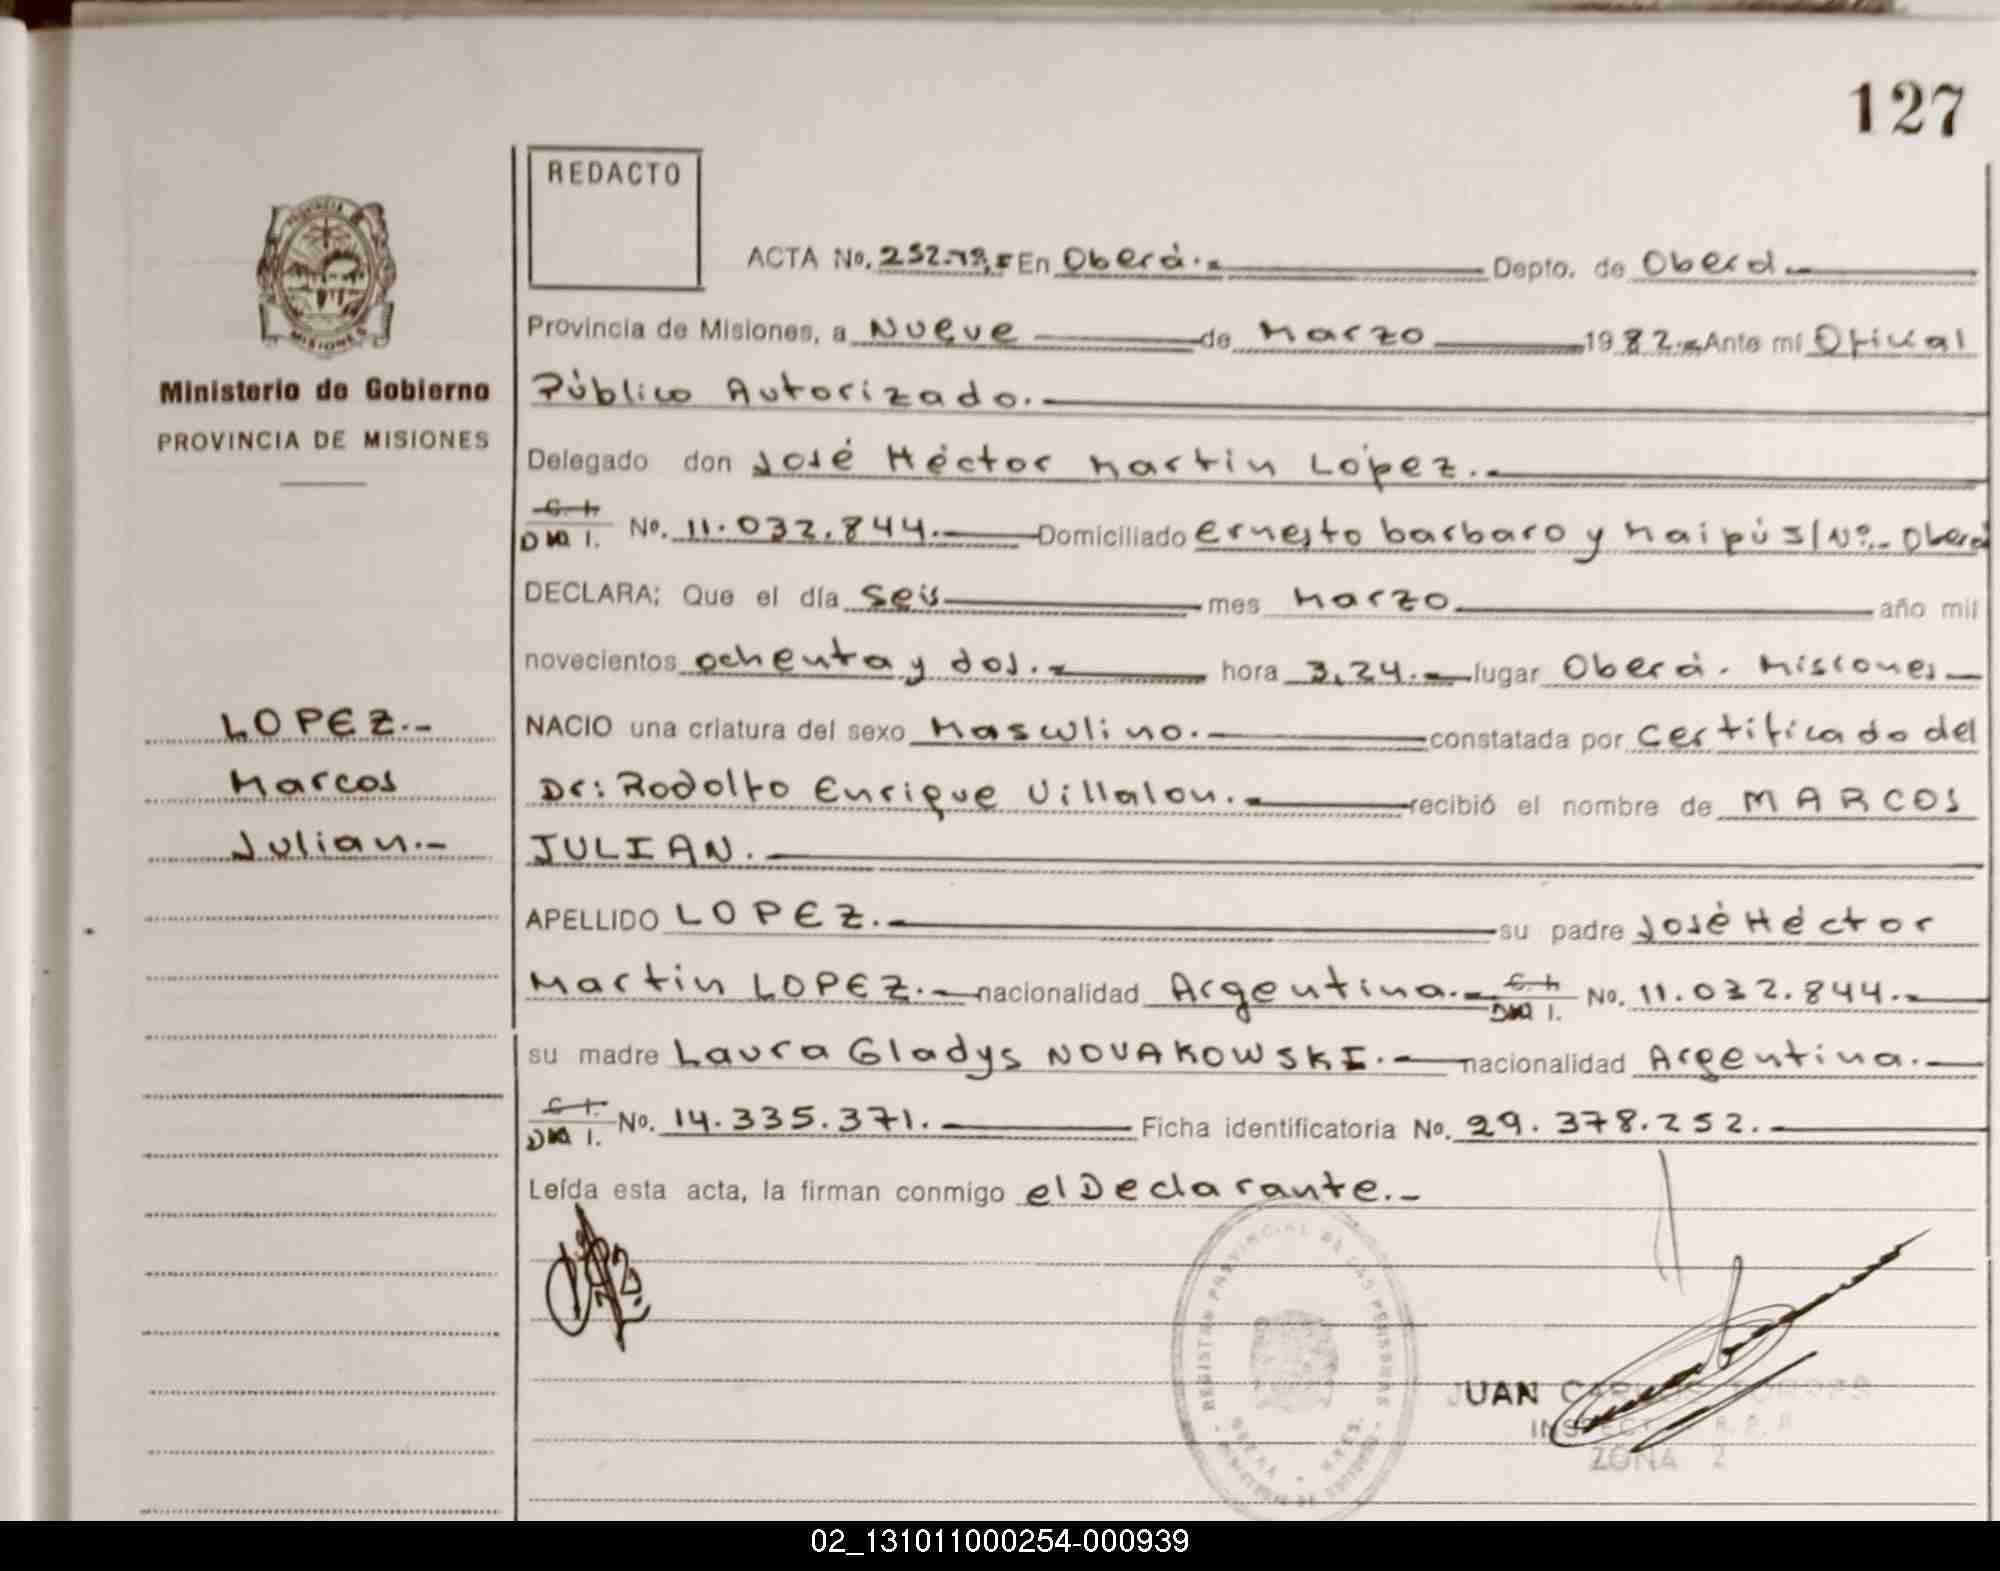 127
REDACTO
ACTA No. 252. En Oberá.- Depto. de Oberá.-
Provincia de Misiones, a Nueve de Marzo 1982.- Ante mí Oficial
Público Autorizado.-
Ministerio de Gobierno
PROVINCIA DE MISIONES
Delegado don José Héctor Martin López.-
C. I.
DNI. No. 11.032.844.- Domiciliado Ernesto barbaro y Maipú S/Nº.- Oberá
DECLARA: Que el día Seis mes Marzo año mil
novecientos ochenta y dos.- hora 3,24.- lugar Oberá. Misiones
LOPEZ.-
Marcos
Julian.-
NACIO una criatura del sexo Masculino.- constatada por Certificado del
Dr: Rodolfo Enrique Villalon.- recibió el nombre de MARCOS
JULIAN.-
APELLIDO LOPEZ.- su padre José Héctor
Martin LOPEZ.- nacionalidad Argentina.- C. I. DNI. No. 11.032.844.-
su madre Laura Gladys NOVAKOWSKI.- nacionalidad Argentina.-
C. I. DNI. No. 14.335.371.- Ficha identificatoria No. 29.378.252.-
Leída esta acta, la firman conmigo el Declarante.-
REGISTRO PROVINCIAL DE LAS PERSONAS
JUAN CARLOS
INSPECTOR R. P. P.
ZONA 2
02_131011000254-000939